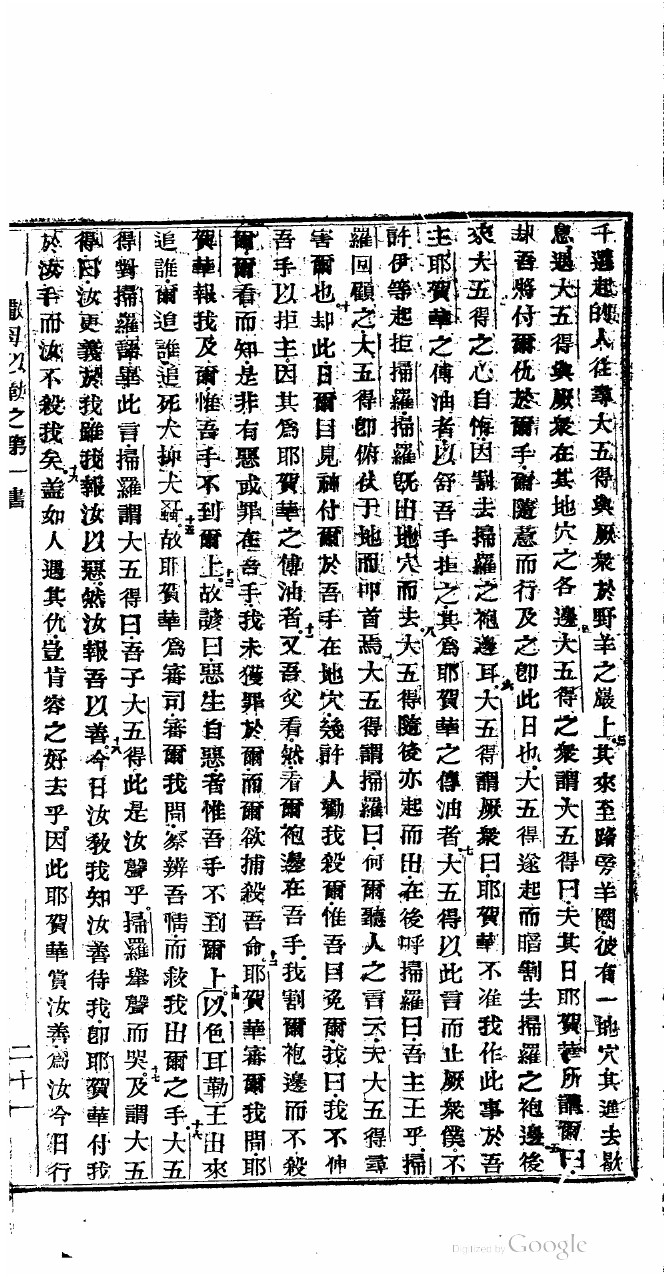 千選起的人往尋大五得與厥衆於野羊之巖上其來至路旁羊圈彼有一地穴其進去歇
息過大五得與厥衆在其地穴之各邊大五得之衆謂大五得曰夫其日耶賀華所謂爾曰
却吾將付爾仇於爾手爾隨意而行及之卽此日也大五得遂起而暗割去掃羅之袍邊後
來大五得之心自悔因割去掃羅之袍邊耳大五得謂厥衆曰耶賀華不准我作此事於吾
主耶賀華之傅油者以舒吾手拒之其爲耶賀華之傅油者大五得以此言而止厥衆僕不
許伊等起拒掃羅掃羅旣出地穴而去大五得隨後亦起而出在後呼掃羅曰吾主王乎掃
羅回顧之大五得卽俯伏于地而叩首焉大五得謂掃羅曰何爾聽人之言云夫大五得尋
害爾也却此日爾目見神付爾於吾手在地穴幾許人勸我殺爾惟吾目免爾我曰我不伸
吾手以拒主因其爲耶賀華之傅油者又吾父看然看爾袍邊在吾手我割爾袍邊而不殺
爾爾看而知是非有惡或罪在吾手我未獲罪於爾而爾欲捕殺吾命耶賀華審爾我間耶
賀華報我及爾惟吾手不到爾上故諺曰惡生自惡者惟吾手不到爾上以色耳勒王出來
追誰爾追誰追死犬抑犬蝨故耶賀華爲審司審爾我間察辨吾情而救我出爾之手大五
得對掃羅講畢此言掃羅謂大五得曰吾子大五得此是汝聲乎掃羅舉聲而哭及謂大五
得曰汝更義於我雖我報汝以惡然汝報吾以善今日汝敎我知汝善待我卽耶賀華付我
於汝手而汝不殺我矣蓋如人遇其仇豈肯容之好去乎因此耶賀華賞汝善爲汝今日行
撒母以勒之第一書 二十一
Digitized by Google